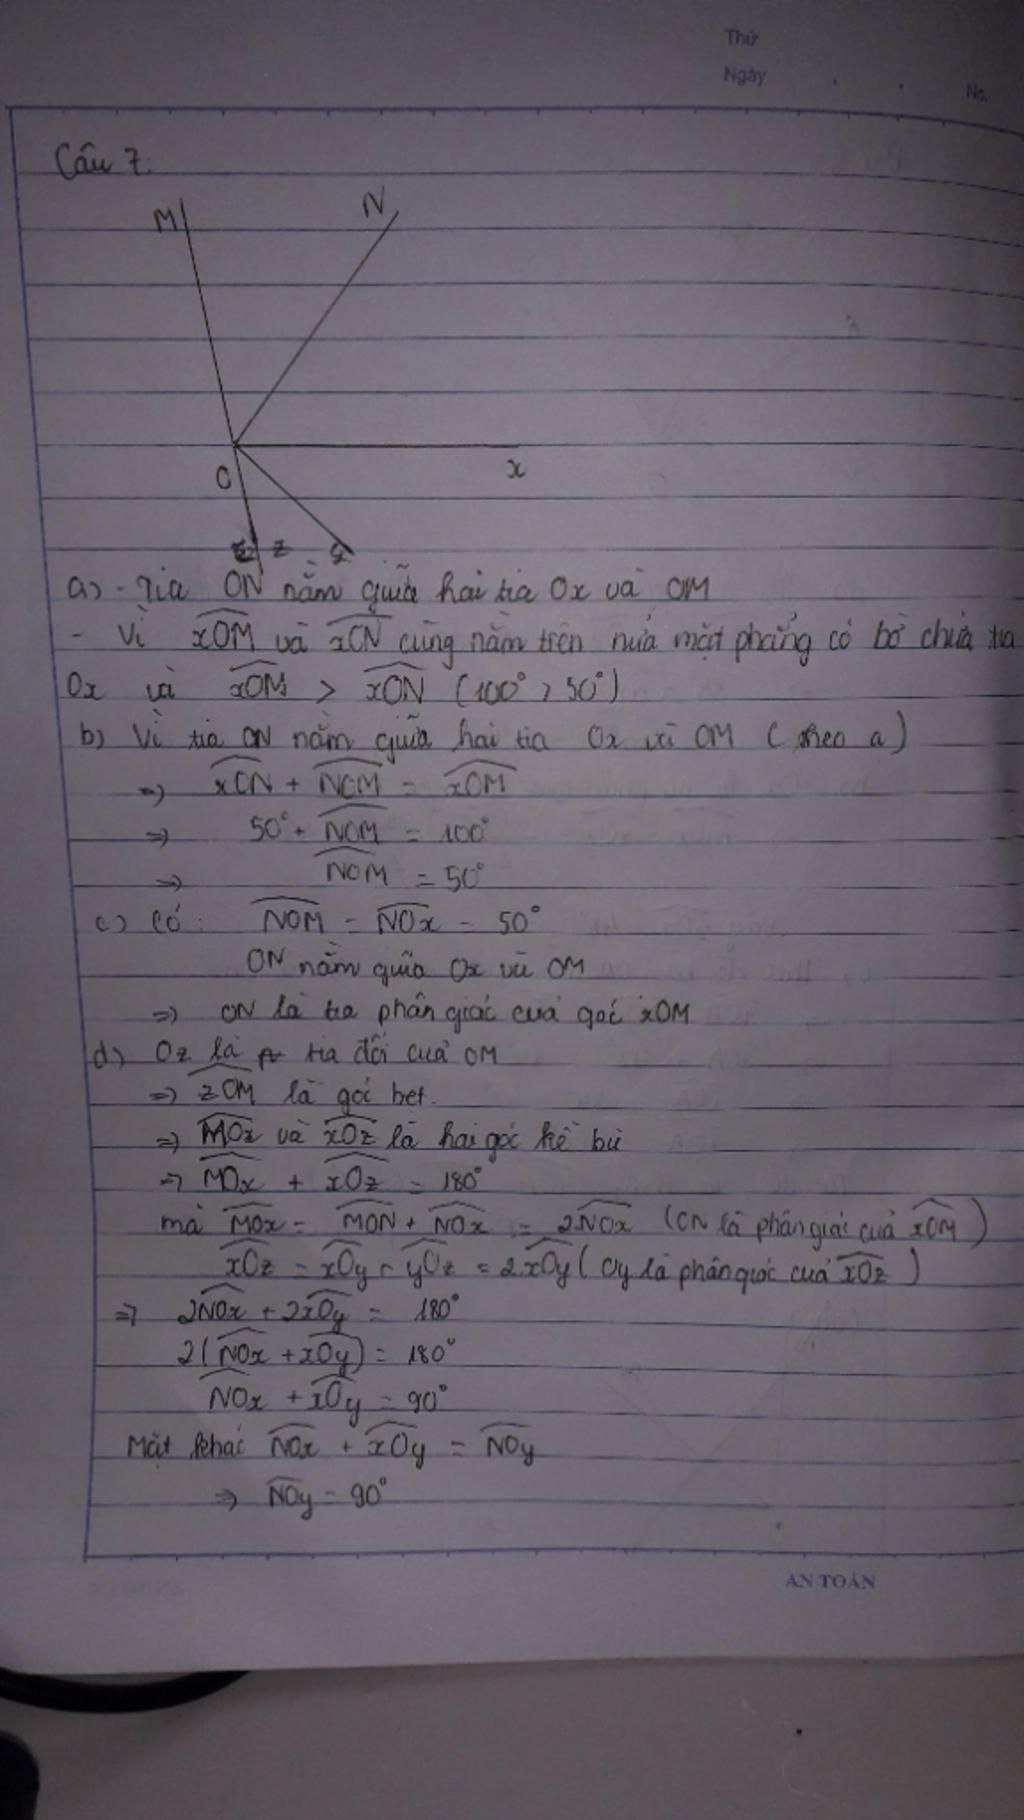 Thứ
Ngày
No.
Câu 7:
M
N
O
x
z
y
a) - Tia ON nằm giữa hai tia Ox và OM
- Vì xOM và xON cùng nằm trên nửa mặt phẳng có bờ chứa tia
Ox và xOM > xON (100° > 50°)
b) Vì tia ON nằm giữa hai tia Ox và OM (theo a)
=> xON + NOM = xOM
=> 50° + NOM = 100°
=> NOM = 50°
c) Có: NOM = NOx = 50°
ON nằm giữa Ox và OM
=> ON là tia phân giác của góc xOM
d) Oz là tia đối của OM
=> zOM là góc bẹt.
=> MOz và xOz là hai góc kề bù
=> MOx + xOz = 180°
mà MOx = MON + NOx = 2NOx (ON là phân giác của xOM)
xOz = xOy + yOz = 2xOy (Oy là phân giác của xOz)
=> 2NOx + 2xOy = 180°
2(NOx + xOy) = 180°
NOx + xOy = 90°
Mặt khác NOx + xOy = NOy
=> NOy = 90°
AN TOÀN